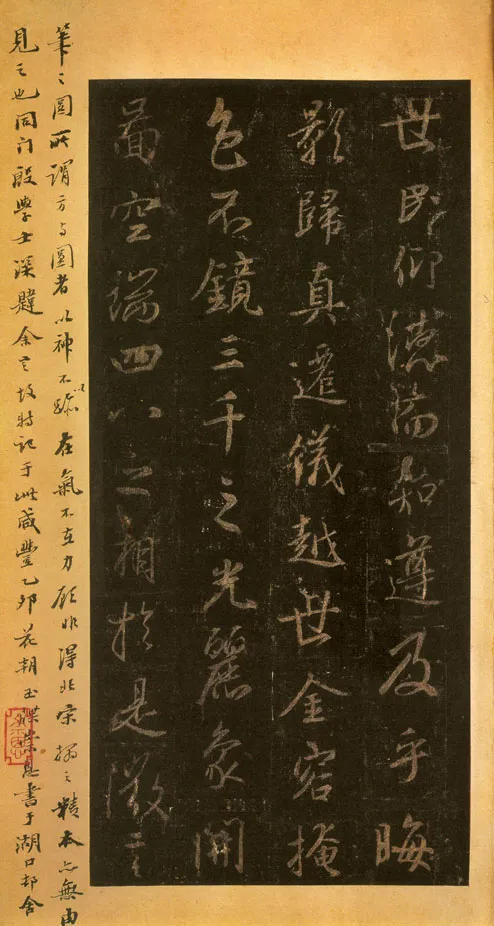 世民仰德而知遵及乎晦
影歸真遷儀越世金容掩
色不鏡三千之光麗象開
啚空端四八之相於是微言
筆之圓所謂方与圓者以神不以跡在氣不在力顧非得北宋搨之精本亦無由
見之也同門殷學士深韙余言故特記于此咸豐乙卯花朝玉牒崇恩書于湖口邨舍